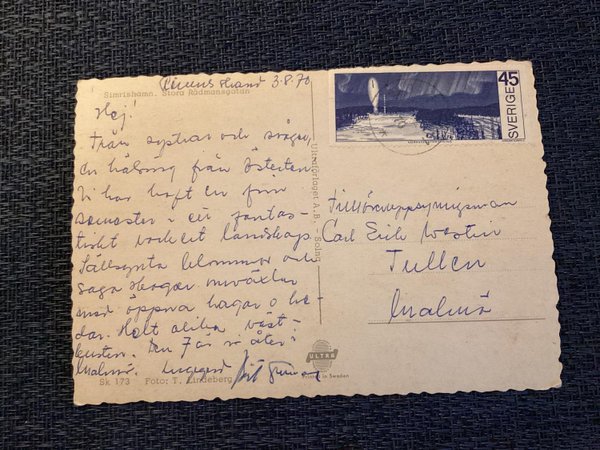 3.8.70
Simrishamn. Stora Rådmansgatan
Hej!
Från systrar och svåger
en hälsning från Österlen
Vi har haft en fin
semester i ett fantas-
tiskt vackert landskap.
Sällsynta blommor och
saga skogar omväxlar
med öppna hagar o he-
dar. Helt olika väst-
kusten. Den 7 är vi åter i
Malmö.
Sk 173 Foto: T. Lindeberg
Ultraförlaget A.B. - Solna
ULTRA
Printed in Sweden
SVERIGE 45
Tillsynsman
Carl Erik Westin
Tullen
Malmö